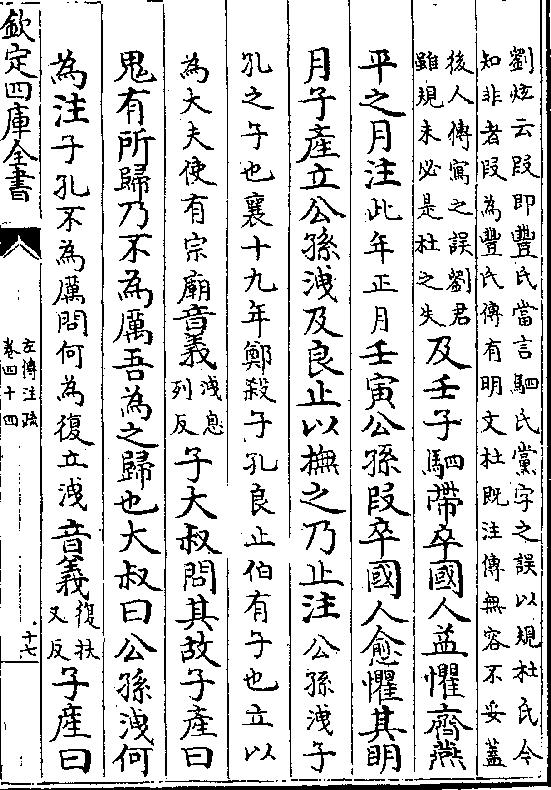 劉炫云段即豐氏當言駟氏黨字之誤以規杜氏今
知非者段為豐氏傳有明文杜既注傳無容不妥蓋
後人傳寫之誤劉君
雖規未必是杜之失
及壬子駟帶卒國人益懼齊燕
平之月注此年正月壬寅公孫段卒國人愈懼其明
月子產立公孫洩及良止以撫之乃止注公孫洩子
孔之子也襄十九年鄭殺子孔良止伯有子也立以
為大夫使有宗廟音義洩息列反子大叔問其故子產曰
鬼有所歸乃不為厲吾為之歸也大叔曰公孫洩何
為注子孔不為厲問何為復立洩音義復扶又反子產曰
欽定四庫全書
左傳注疏
卷四十四
十七